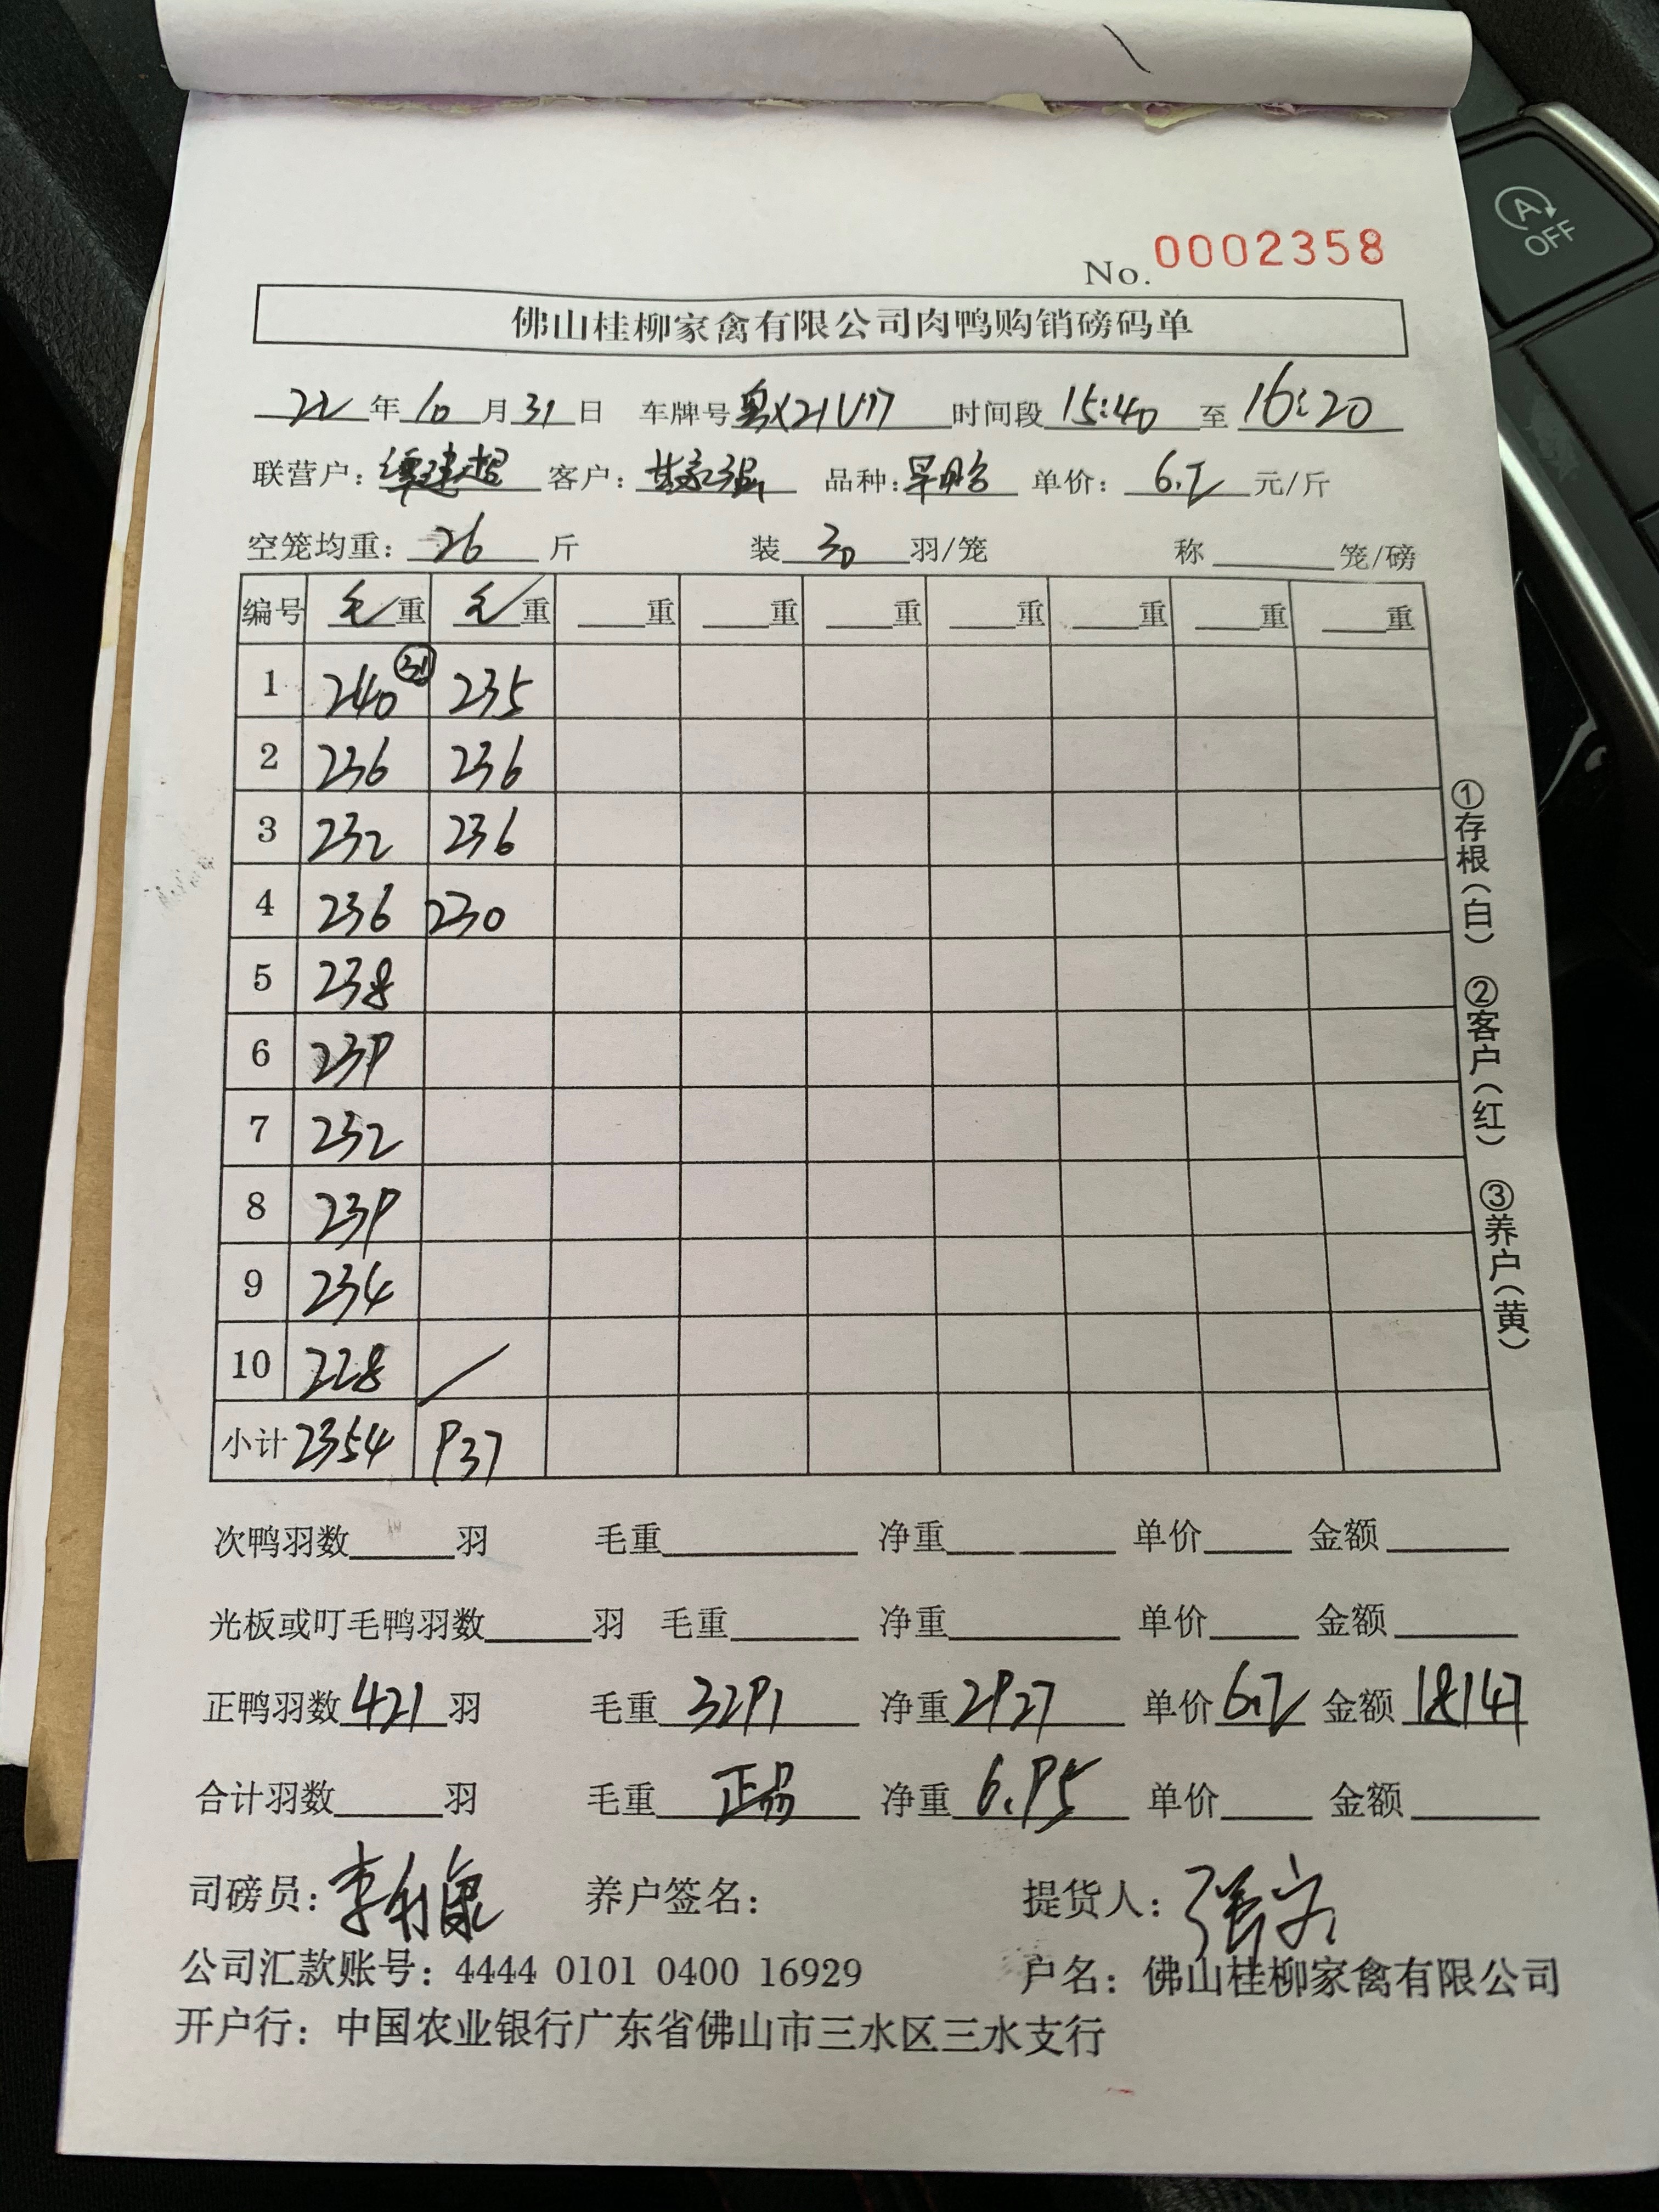 No. 0002358
佛山桂柳家禽有限公司肉鸭购销磅码单
22 年 10 月 31 日 车牌号 粤X21U17 时间段 15:40 至 16:20
联营户: 谭建超 客户: 强 品种: 单价: 6.2 元/斤
空笼均重: 26 斤 装 30 羽/笼 称 笼/磅
编号 毛重 毛重 重 重 重 重 重 重 重
1 240 31 235
2 236 236
3 232 236
4 236 230
5 238
6 239
7 232
8 239
9 234
10 228 /
小计 2354 937
次鸭羽数 羽 毛重 净重 单价 金额
光板或叮毛鸭羽数 羽 毛重 净重 单价 金额
正鸭羽数 421 羽 毛重 3291 净重 2927 单价 6.2 金额 18147
合计羽数 羽 毛重 正品 净重 6.95 单价 金额
司磅员: 李利康 养户签名: 提货人:
公司汇款账号: 4444 0101 0400 16929 户名: 佛山桂柳家禽有限公司
开户行: 中国农业银行广东省佛山市三水区三水支行
①存根(白) ②客户(红) ③养户(黄)
A OFF